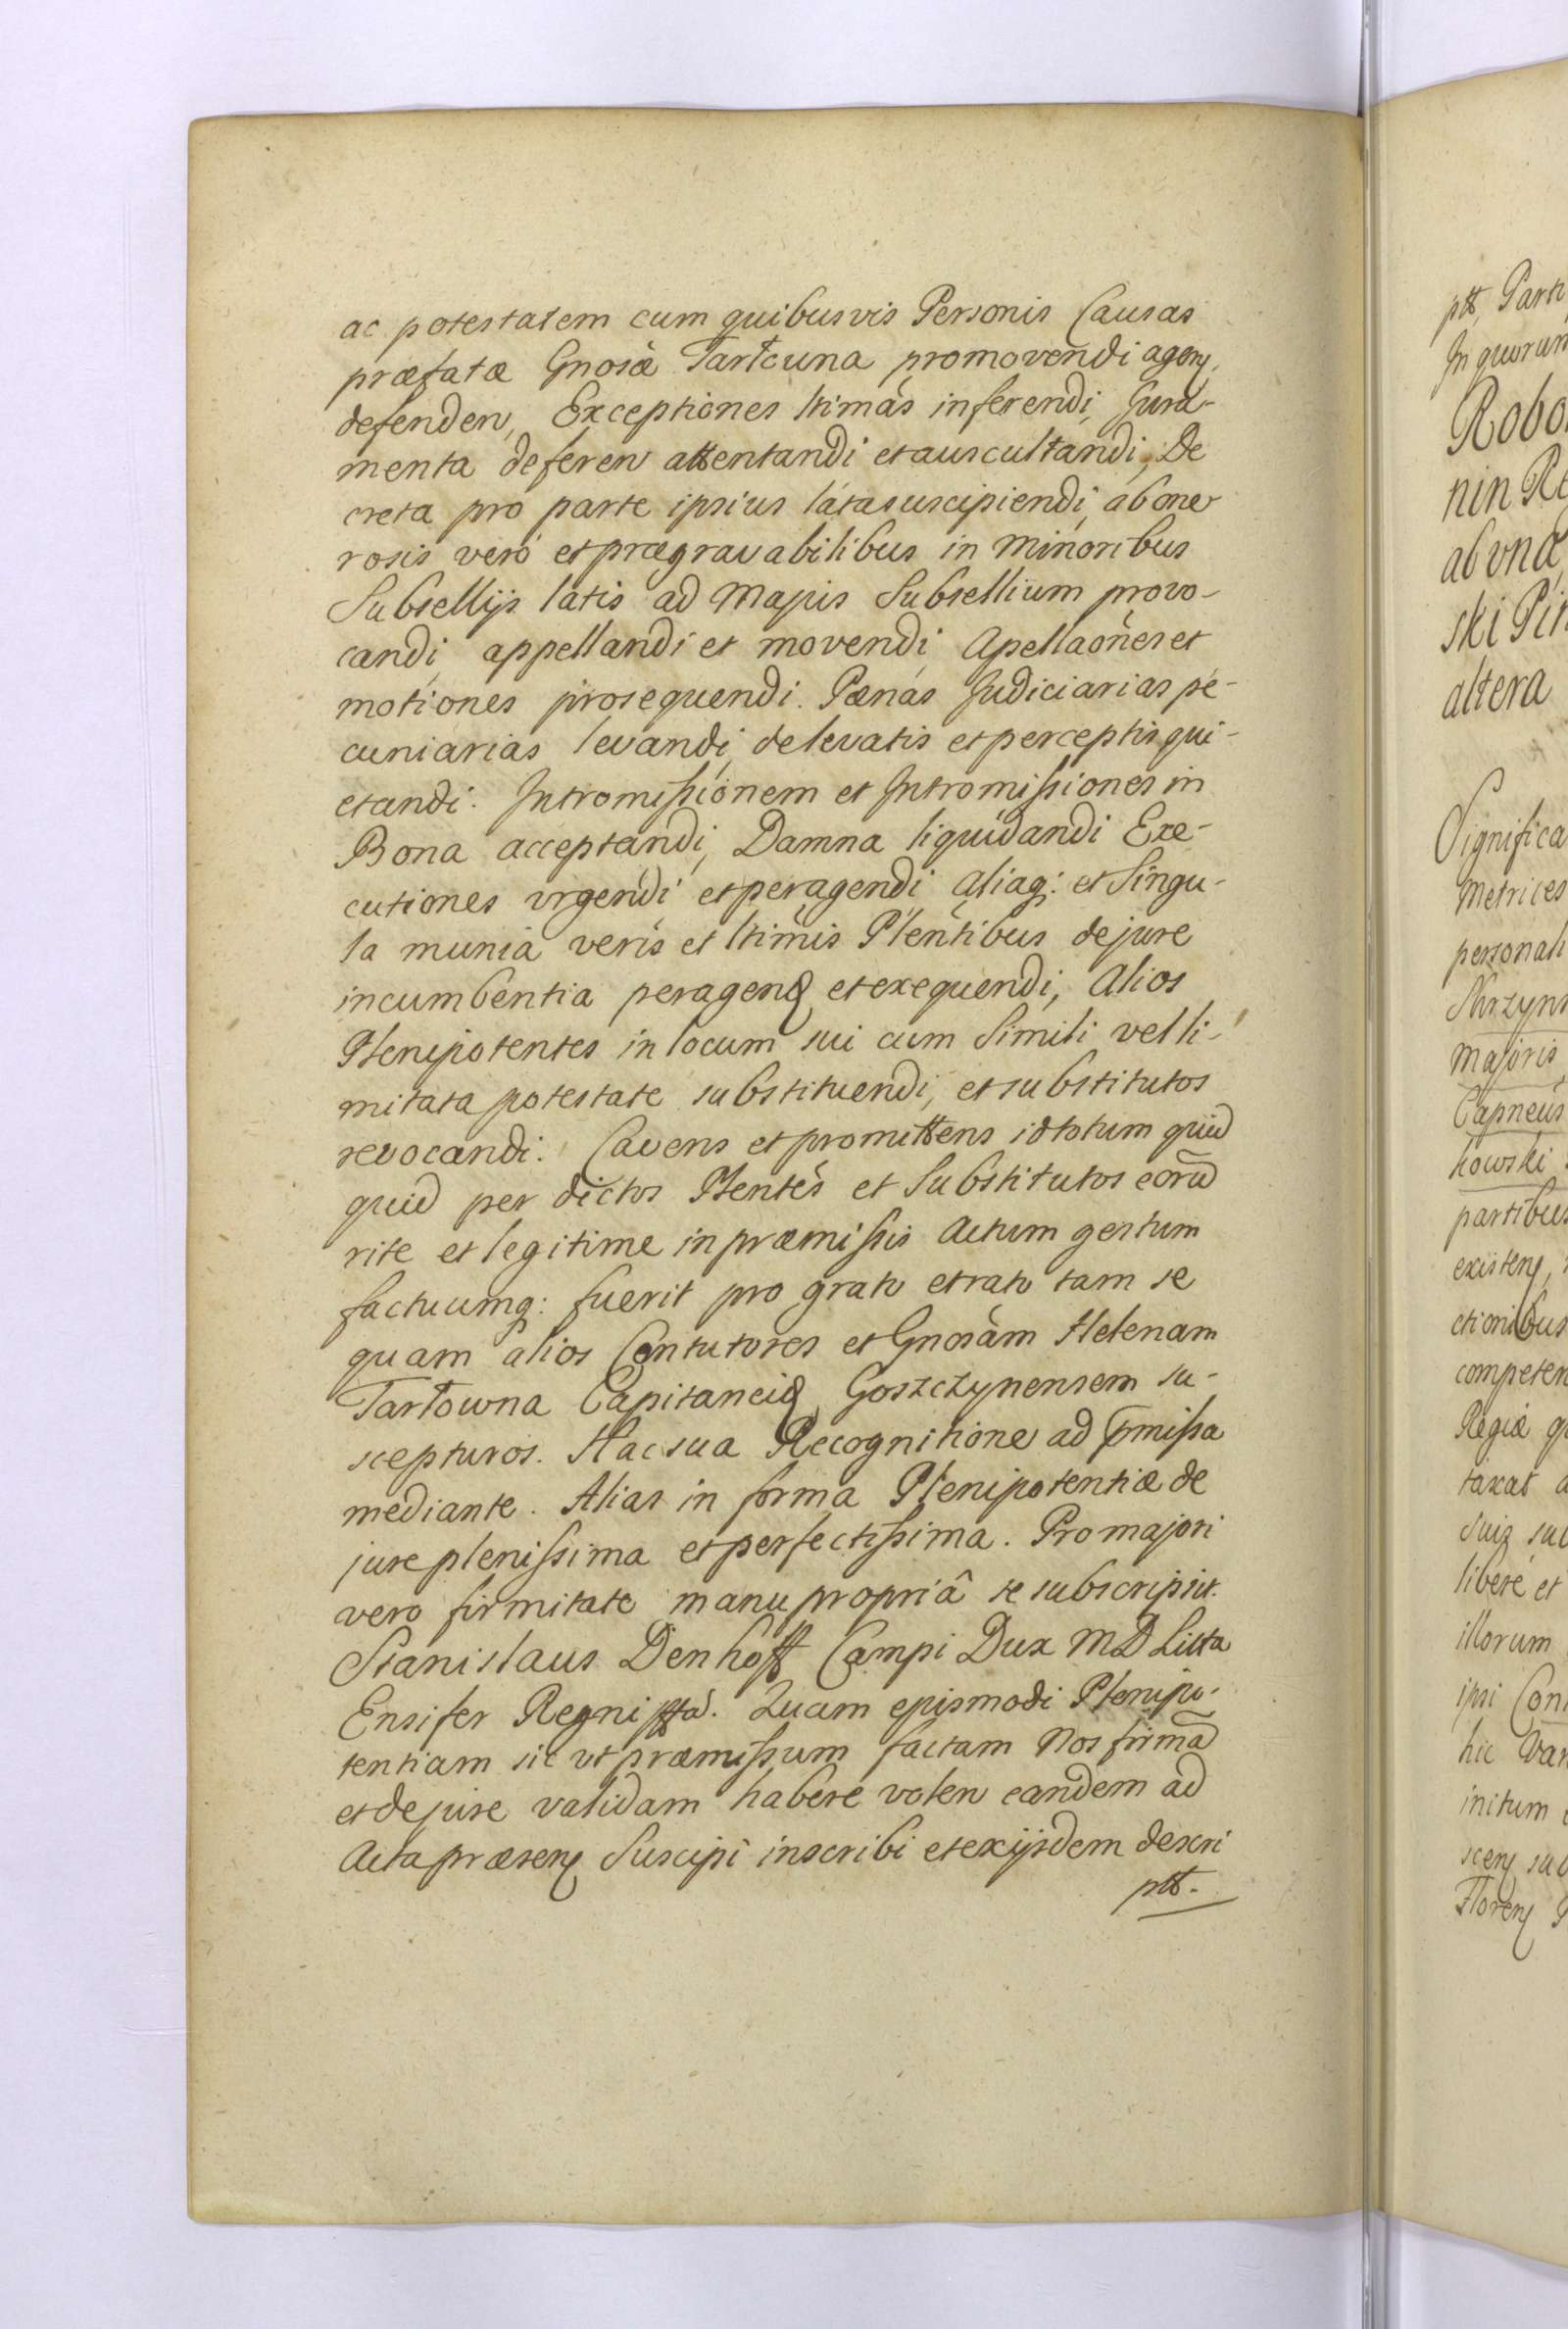 ac potestatem cum quibusvis Personis Causas
præfatæ Gnosæ Tartcuna promovendi agen,
defenden, Exceptiones ltimas inferendi, Jura-
menta deferen attentandi et auscultandi, De
creta pro parte ipsius lata suscipiendi, ab one
rosis vero et prægravabilibus in minoribus
Subsellijs latis ad Majus Subsellium provo-
candi, appellandi et movendi, Apellaoñes et
motiones prosequendi. Pænas Judiciarias pe-
cuniarias levandi, de levatis et perceptis qui-
etandi. Intromissionem et Intromissiones in
Bona acceptandi, Damna liquidandi Exe-
cutiones urgendi et peragendi aliaq: et Singu-
la munia veris et ltimis Plentibus de jure
incumbentia peragend et exequendi, Alios
Plenipotentes in locum sui cum Simili vel li-
mitata potestate substituendi, et substitutos
revocandi. Cavens et promittens id totum quid
quid per dictos Plentes et Substitutos eorūd
rite et legitime in præmissis Actum gestum
factuumq: fuerit pro grato et rato tam se
quam alios Contutores et Gnosam Helenam
Tarłowna Capitaneid Goszczynensem su-
scepturos. Hac sua Recognitione ad pmissa
mediante. Alias in forma Plenipotentiæ de
jure plenissima et perfectissima. Pro majori
vero firmitate manu propriâ se subscripsit.
Stanislaus Denhoff Campi Dux MD Litta
Ensifer Regni ptta. Quam ejusmodi Plenipo-
tentiam sic ut præmissum factam Nos firmā
et de jure validam habere volen eandem ad
Acta præsen Suscipi inscribi et ex ijsdem descri
ptt.
ptt, Parti
In quorum
Robo
nin Re
ab una
ski Pi
altera
Significa
Metrices
personali
Majoris
Capneus
kowski
partibus
existen,
ctionibus
competen
Regiæ q
taxat a
suis suc
libere et
illorum
ipsi Con
hic War
initum
scen sub
Floren